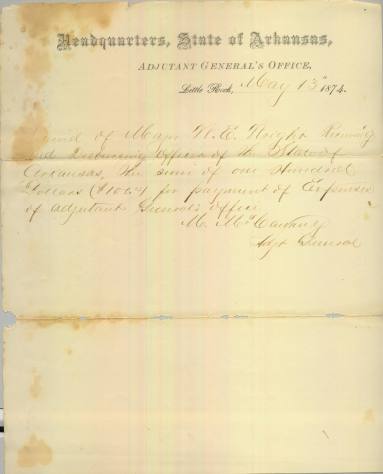 Headquarters, State of Arkansas,
ADJUTANT GENERAL'S OFFICE,
Little Rock, May 13" 1874.
of Major
and Disbursing Officer of the State of
Arkansas, the sum of one Hundred
Dollars ($100) for payment of Expenses
of adjutant General's office
M.
Adjt General